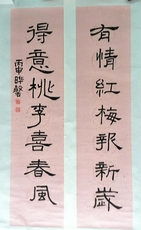 有情紅梅報新歲
得意桃李喜春風
丙申